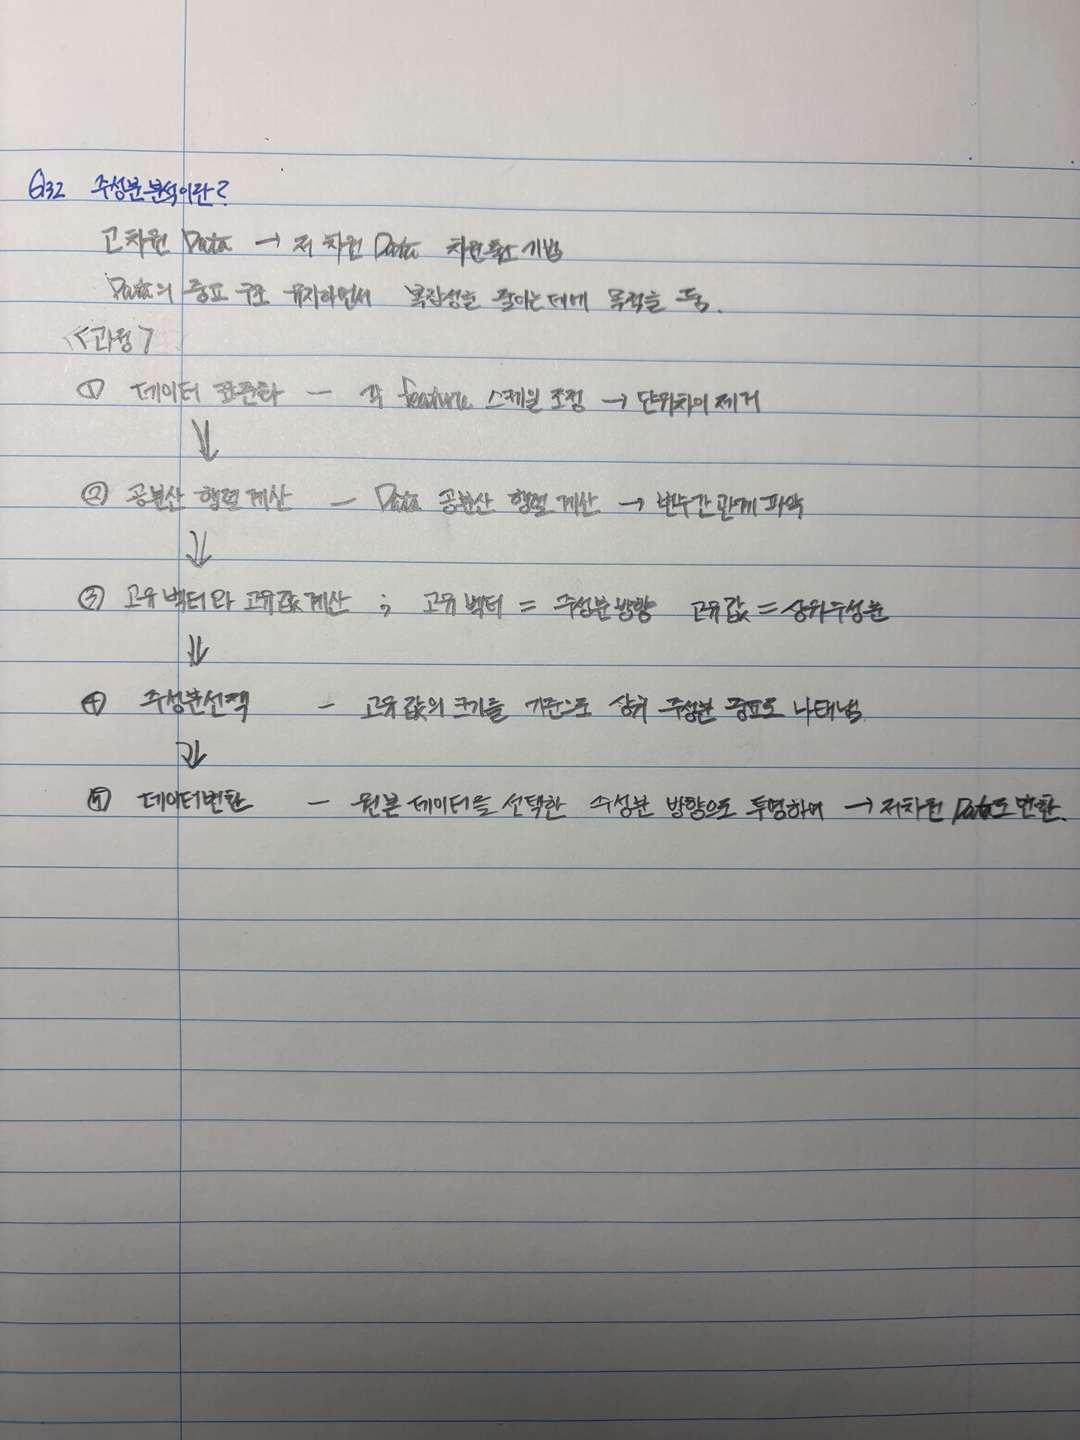 Q32 주성분분석이란?
고차원 Data → 저차원 Data 차원축소 기법
Data의 중요 구조 유지하면서 복잡성을 줄이는데에 목적을 둠.
<과정>
① 데이터 표준화 - 각 feature 스케일 조정 → 단위차이 제거
② 공분산 행렬계산 - Data 공분산 행렬계산 → 변수간관계 파악
③ 고유벡터와 고유값계산 ; 고유벡터 = 주성분방향 고유값 = 상위주성분
④ 주성분선택 - 고유값의 크기를 기준으로 상위 주성분 중요도 나타냄.
⑤ 데이터변환 - 원본 데이터를 선택한 주성분 방향으로 투영하여 → 저차원 Data로 변환.